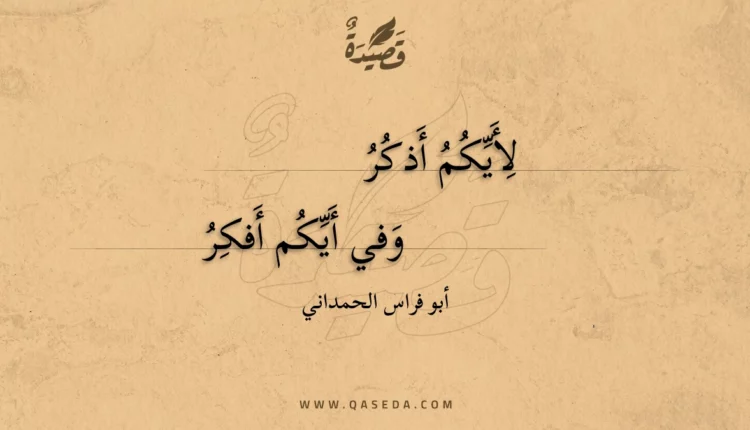 قَصِيدَةٌ
لِأَيِّكُمُ أَذكُرُ
وَفي أَيِّكُم أَفكِرُ
أبو فراس الحمداني
WWW.QASEDA.COM